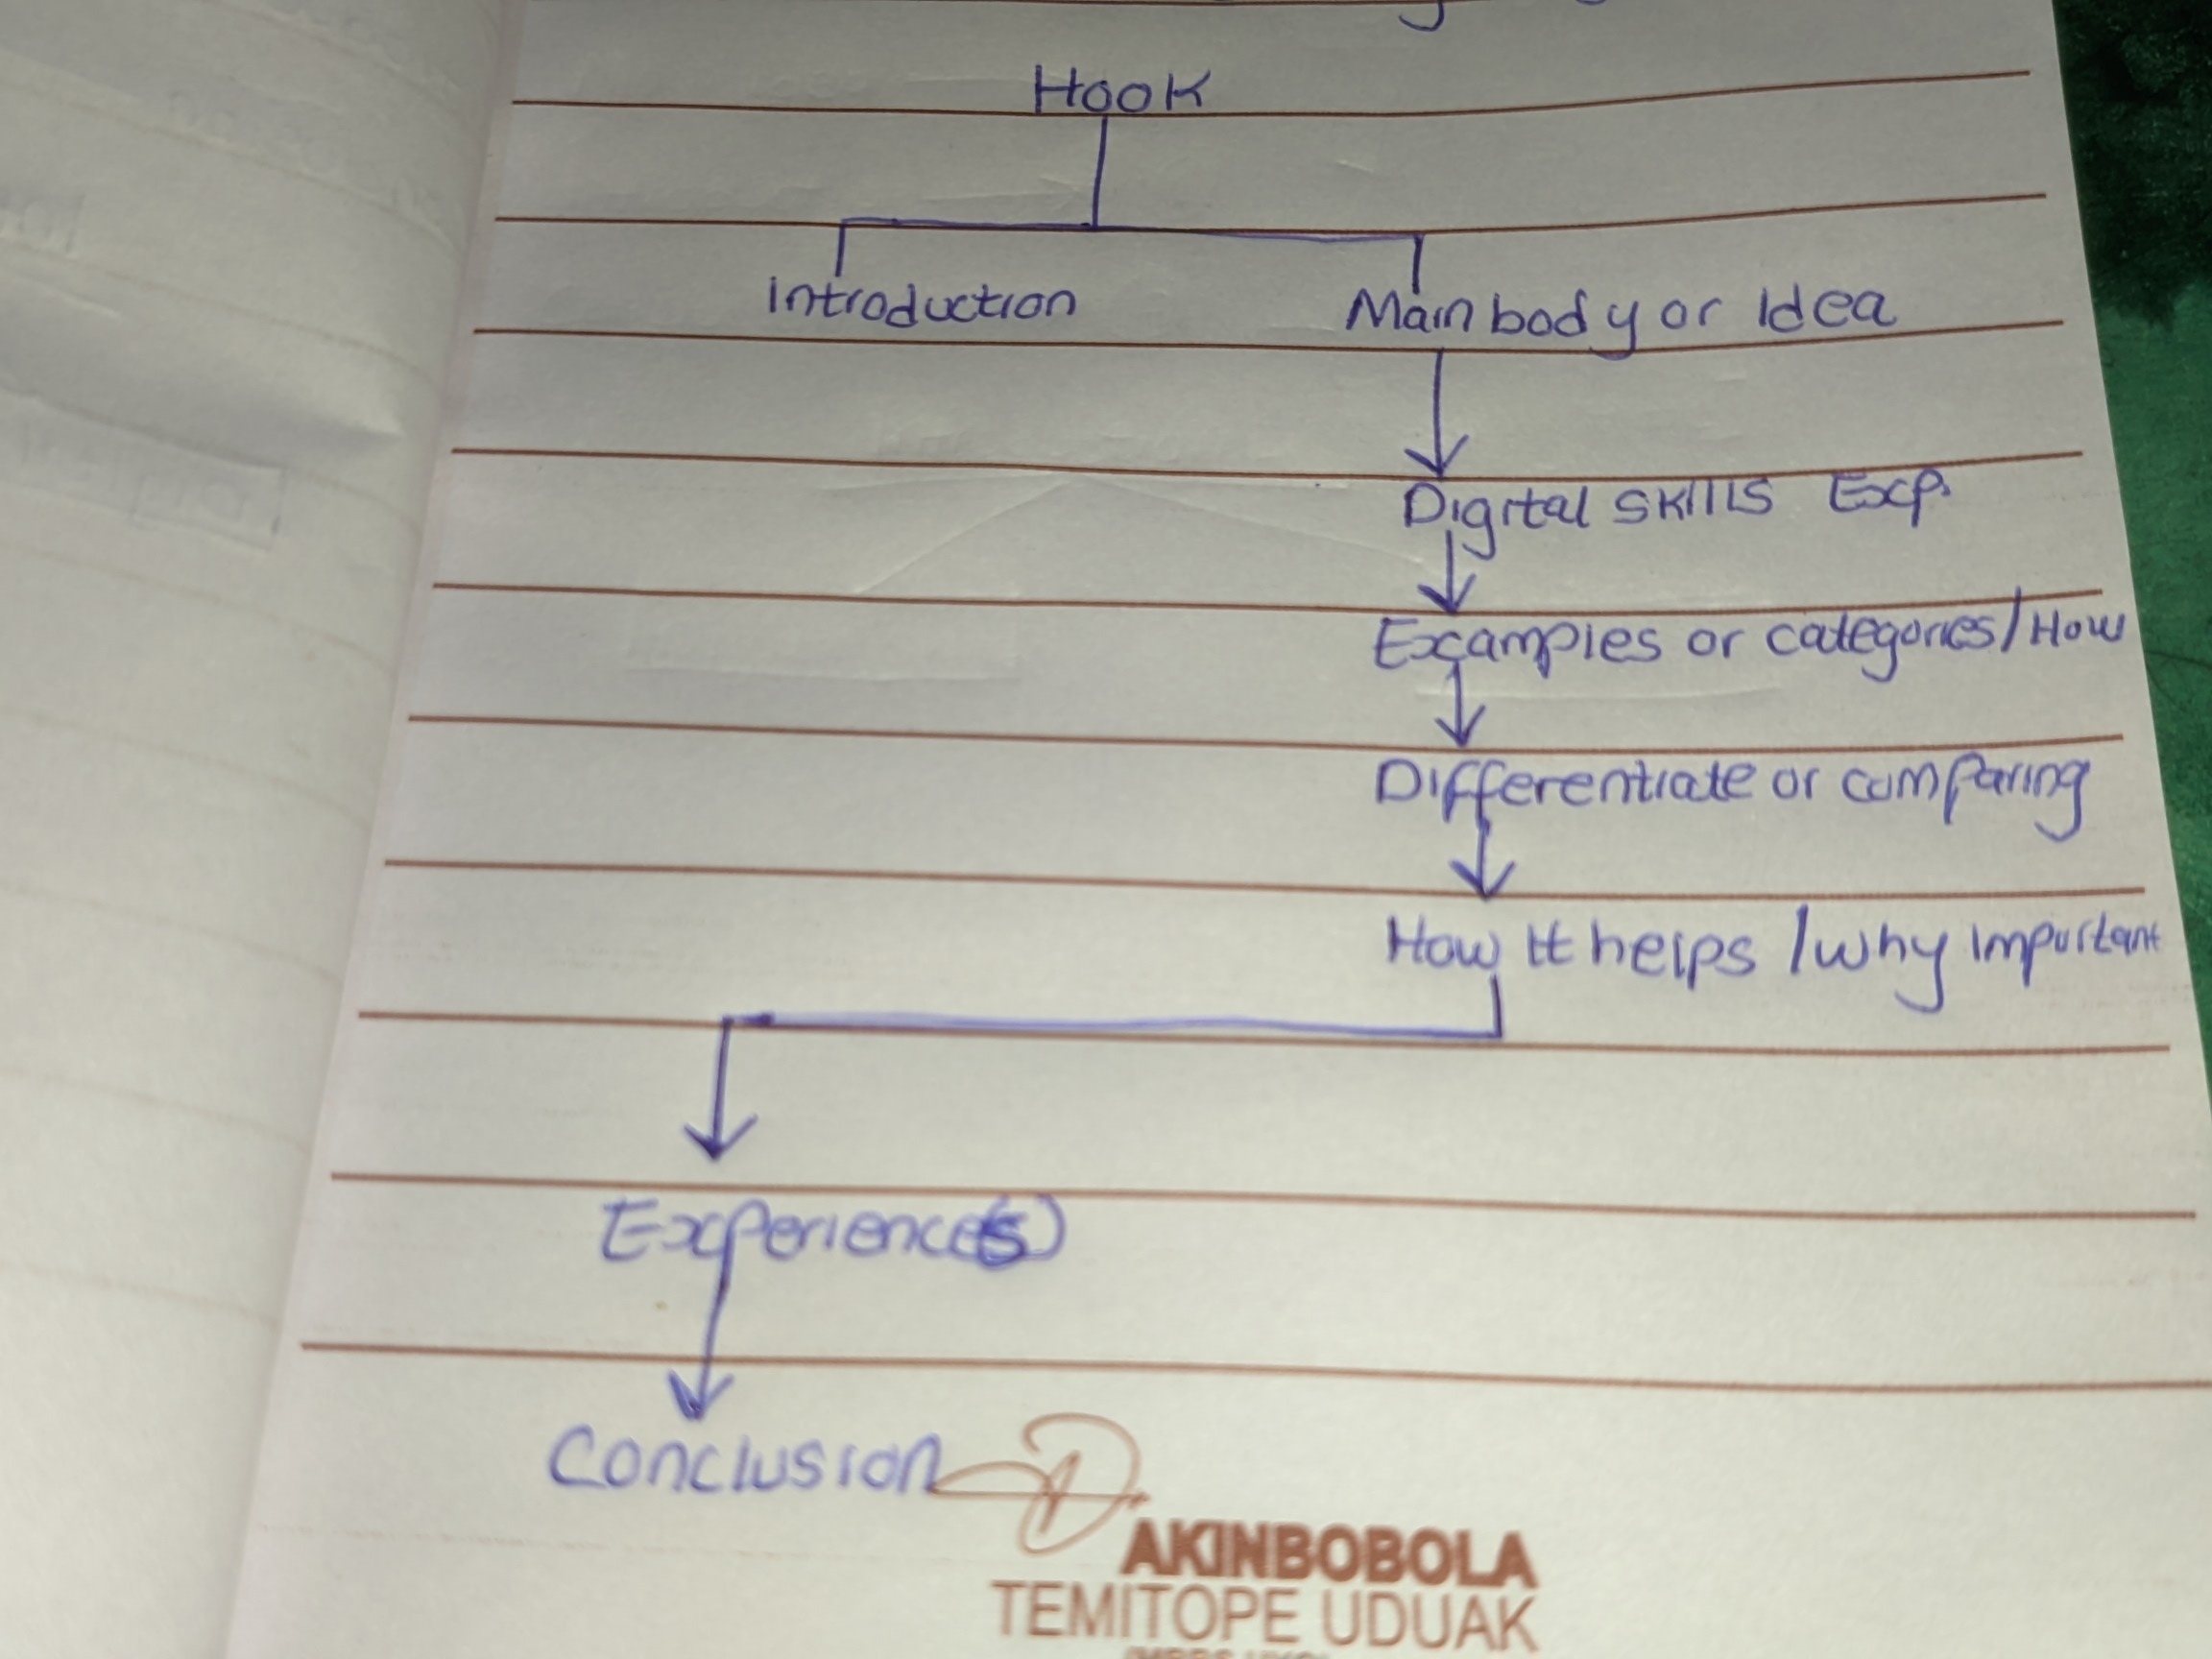 Hook
Introduction Main body or Idea
Digital skills Exp.
Examples or categories/How
Differentiate or comparing
How It helps /why important
Experience(s)
Conclusion
AKINBOBOLA
TEMITOPE UDUAK